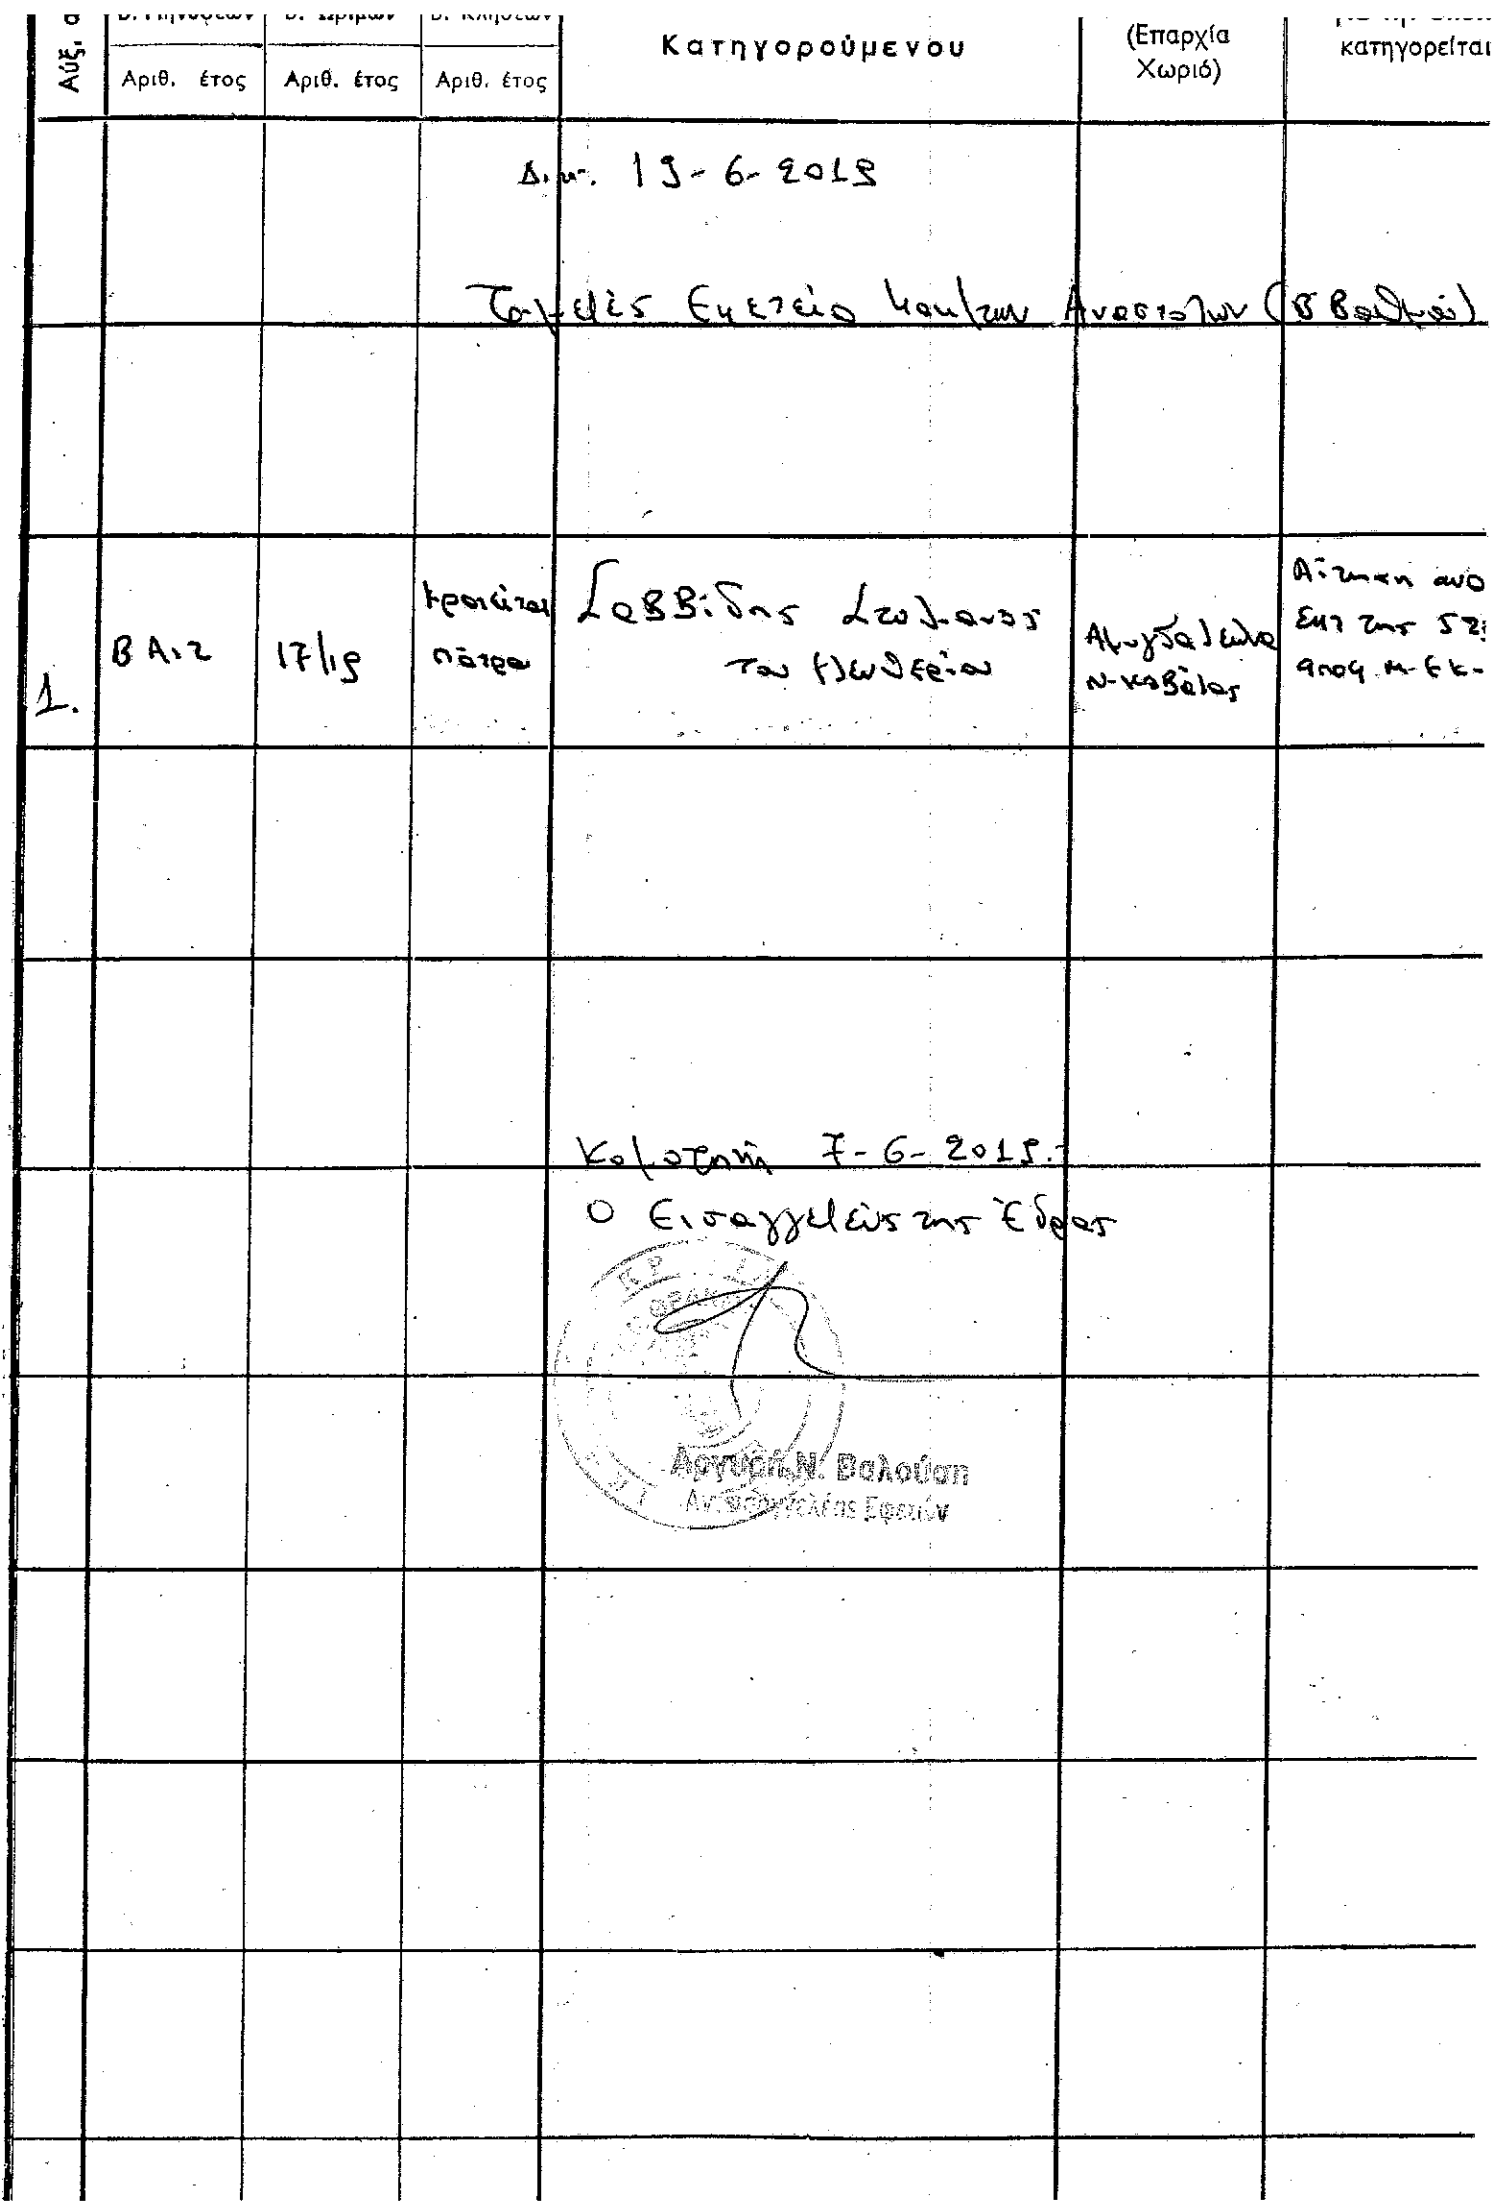 Αύξ. α
Β. Μηνύσεων Β. Ωρίμων Β. Κλήσεων
Αριθ. έτος Αριθ. έτος Αριθ. έτος
Κατηγορούμενου
(Επαρχία
Χωριό)
για την οποί
κατηγορείται
Δικ. 19-6-2019
Τριμελές Εφετείο Κακ/των Αναστολών (Β Βαθμού)
1. Β Α.2 17/19 κρατείται
πάτρα
Σαββίδης Στυλιανός
του Ελευθερίου
Αμυγδαλεώνα
Ν. Καβάλας
Αίτηση ανα
εκτ της 52
αποφ. Μ.Ε.Κ.
Κομοτηνή 7-6-2019.
Ο Εισαγγελεύς της Έδρας
ΘΡΑΚΗΣ
Αργυρή Ν. Βαλούση
Αντεισαγγελέας Εφετών